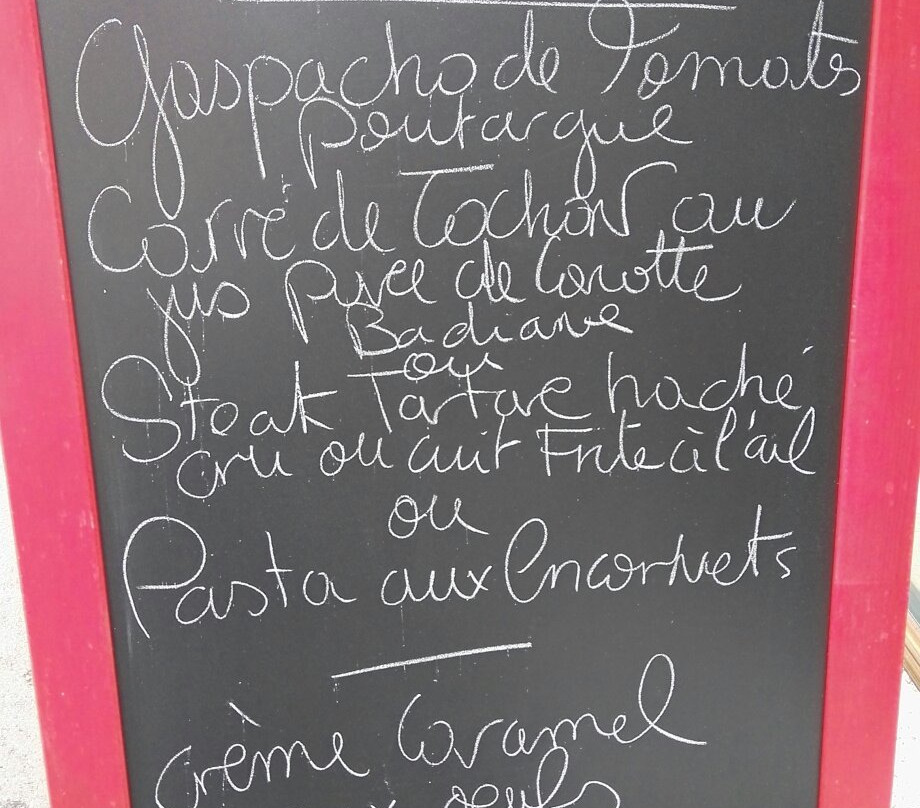 Gaspacho de Tomates
Poutargue
Carré de Cochon au
jus Purée de Carotte
Badiane
ou
Steak Tartare haché
cru ou cuit Frite à l'ail
ou
Pasta aux Encornets
crème Caramel
oeufs